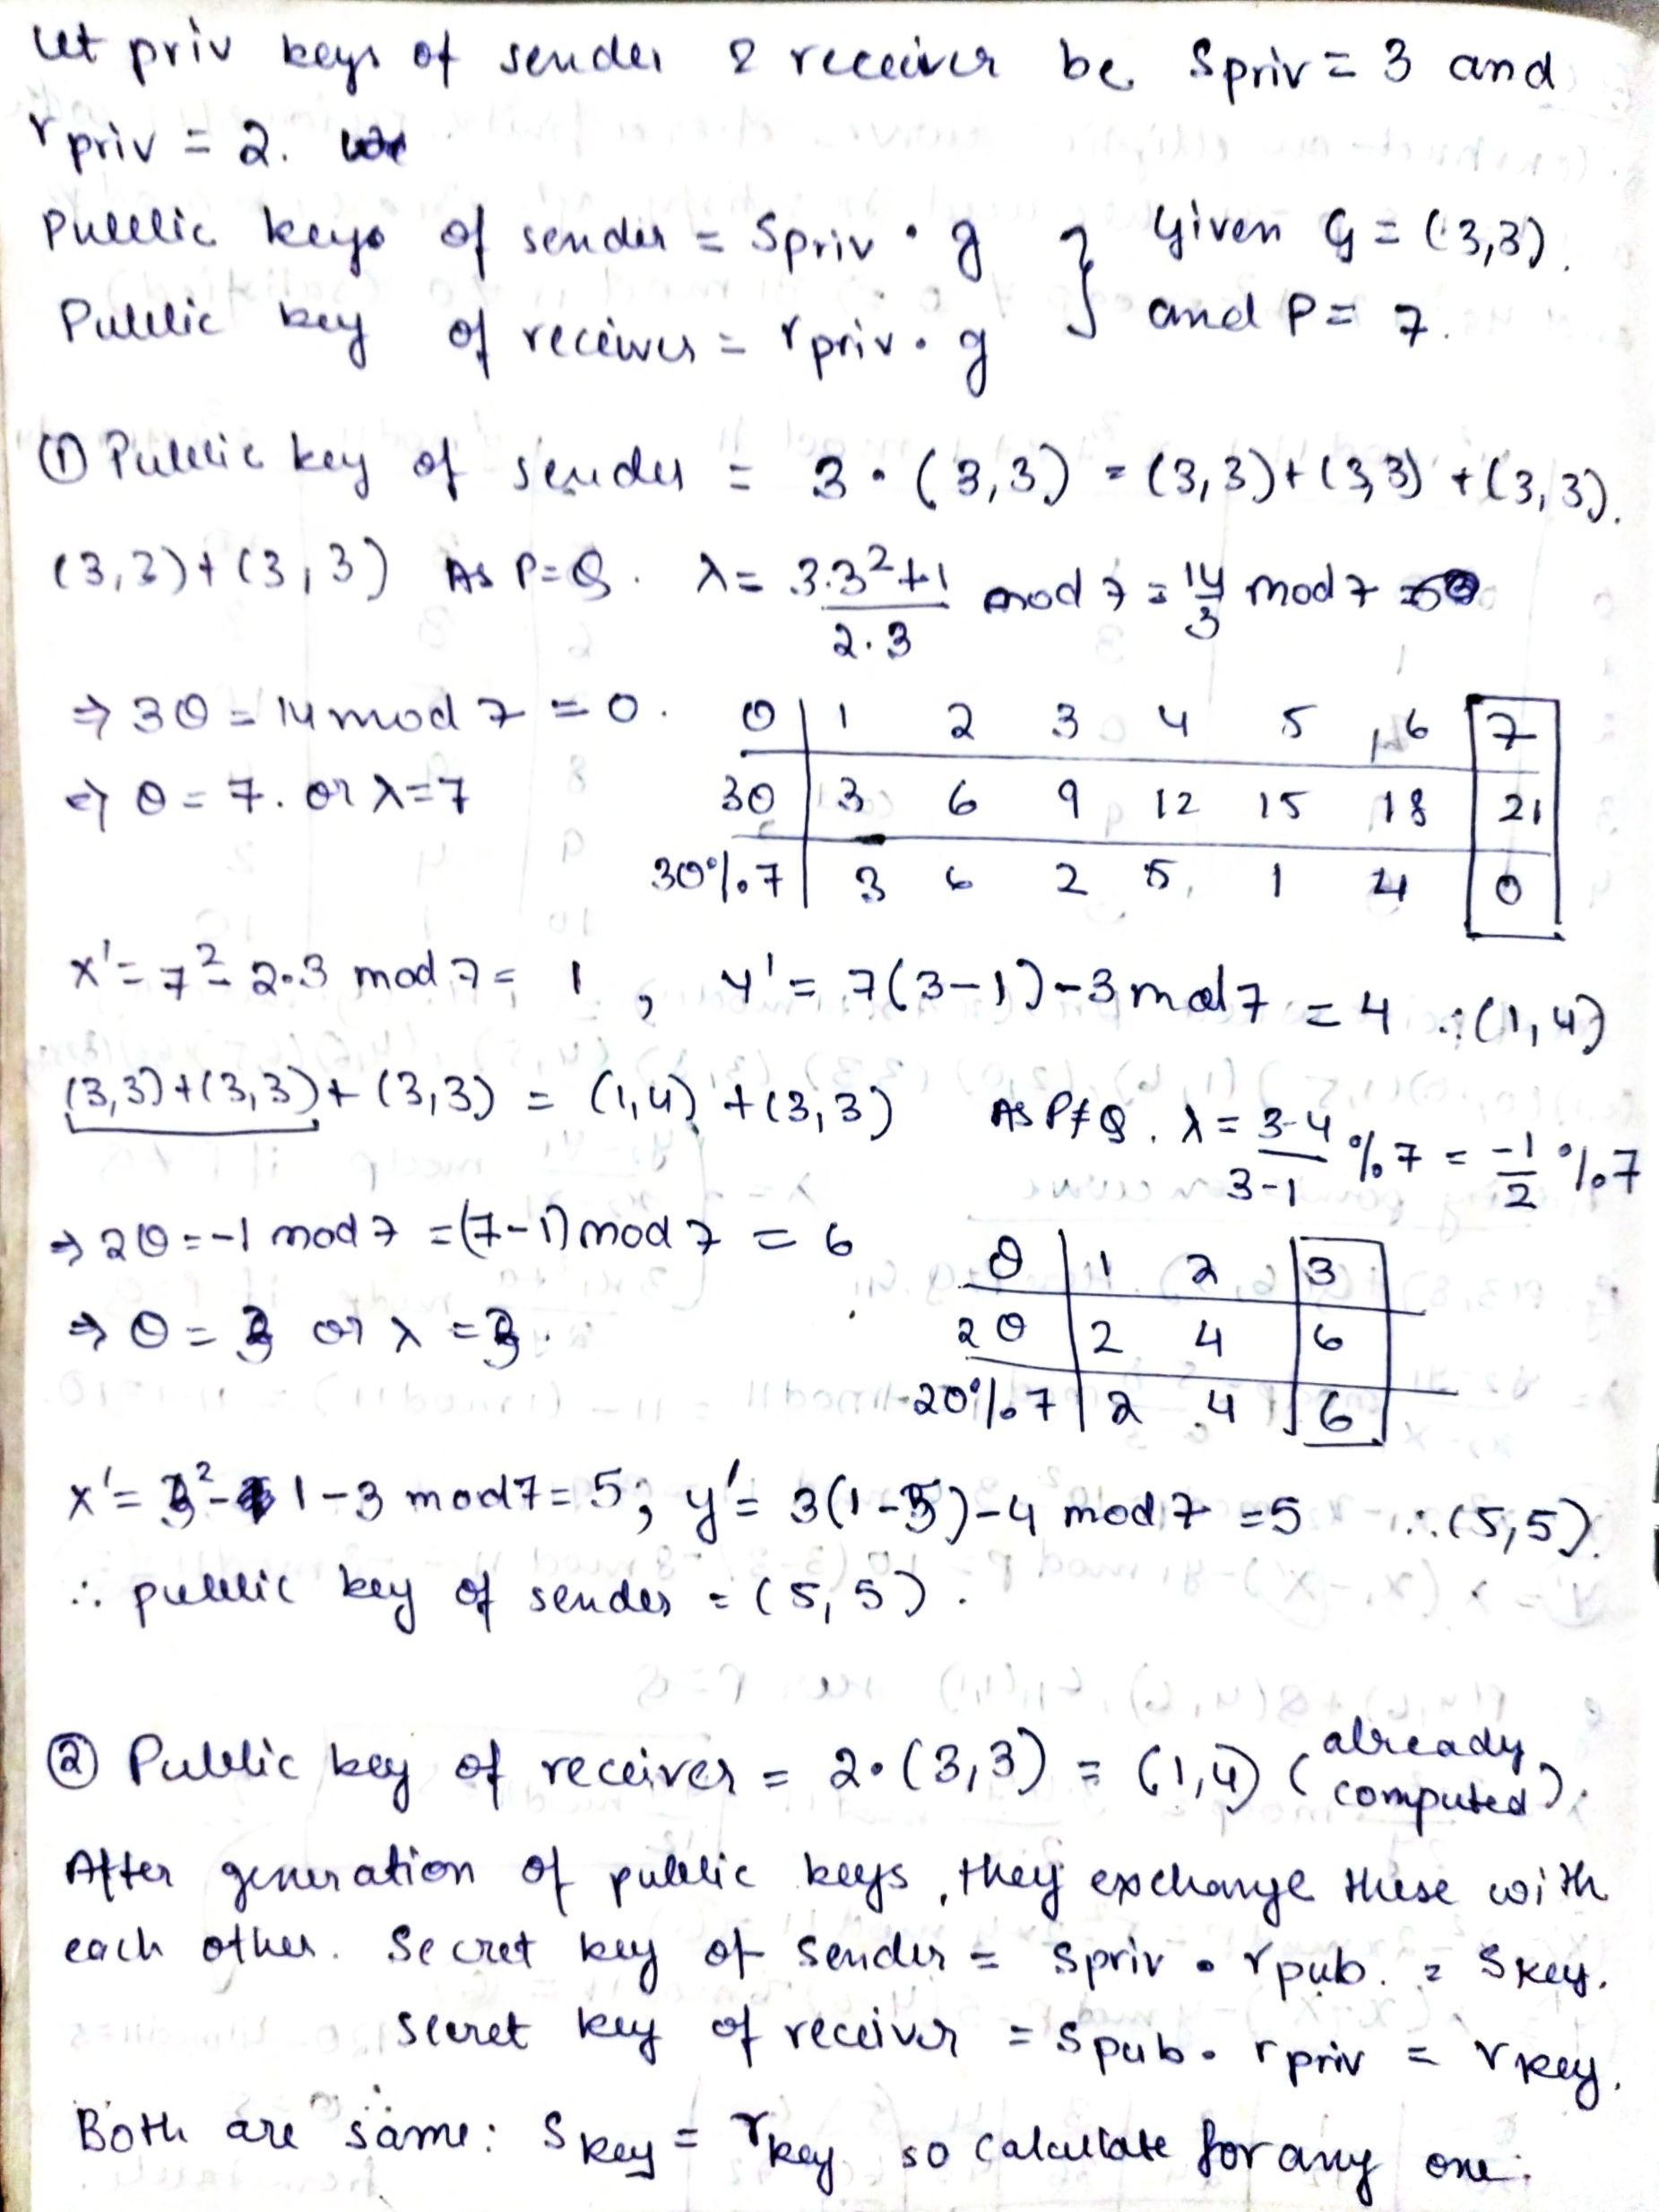 Let priv keys of sender & receiver be Spriv = 3 and
rpriv = 2.
Public keys of sender = Spriv · g } Given G = (3,3).
Public key of receiver = rpriv · g and P = 7.
① Public key of sender = 3 · (3,3) = (3,3)+(3,3)+(3,3).
(3,3)+(3,3) As P=Q. λ = 3·3²+1/2·3 mod 7 = 14/3 mod 7
⇒ 3θ = 14 mod 7 = 0. θ | 1 2 3 4 5 6 7
⇒ θ = 7. or λ=7 3θ | 3 6 9 12 15 18 21
3θ%7 | 3 6 2 5 1 4 0
x' = 7² - 2·3 mod 7 = 1 , y' = 7(3-1)-3 mod 7 = 4 ∴ (1,4)
(3,3)+(3,3)+(3,3) = (1,4)+(3,3) As P≠Q. λ = 3-4/3-1 %7 = -1/2 %7
⇒ 2θ = -1 mod 7 = (7-1) mod 7 = 6 θ | 1 2 3
⇒ θ = 3 or λ = 3. 2θ | 2 4 6
2θ%7 | 2 4 6
x' = 3² - 1 - 3 mod 7 = 5; y' = 3(1-5)-4 mod 7 = 5 ∴ (5,5).
∴ public key of sender = (5,5).
② Public key of receiver = 2·(3,3) = (1,4) (already computed).
After generation of public keys, they exchange these with
each other. Secret key of sender = Spriv · rpub. = Skey.
Secret key of receiver = Spub · rpriv = rkey.
Both are same: Skey = rkey so calculate for any one.